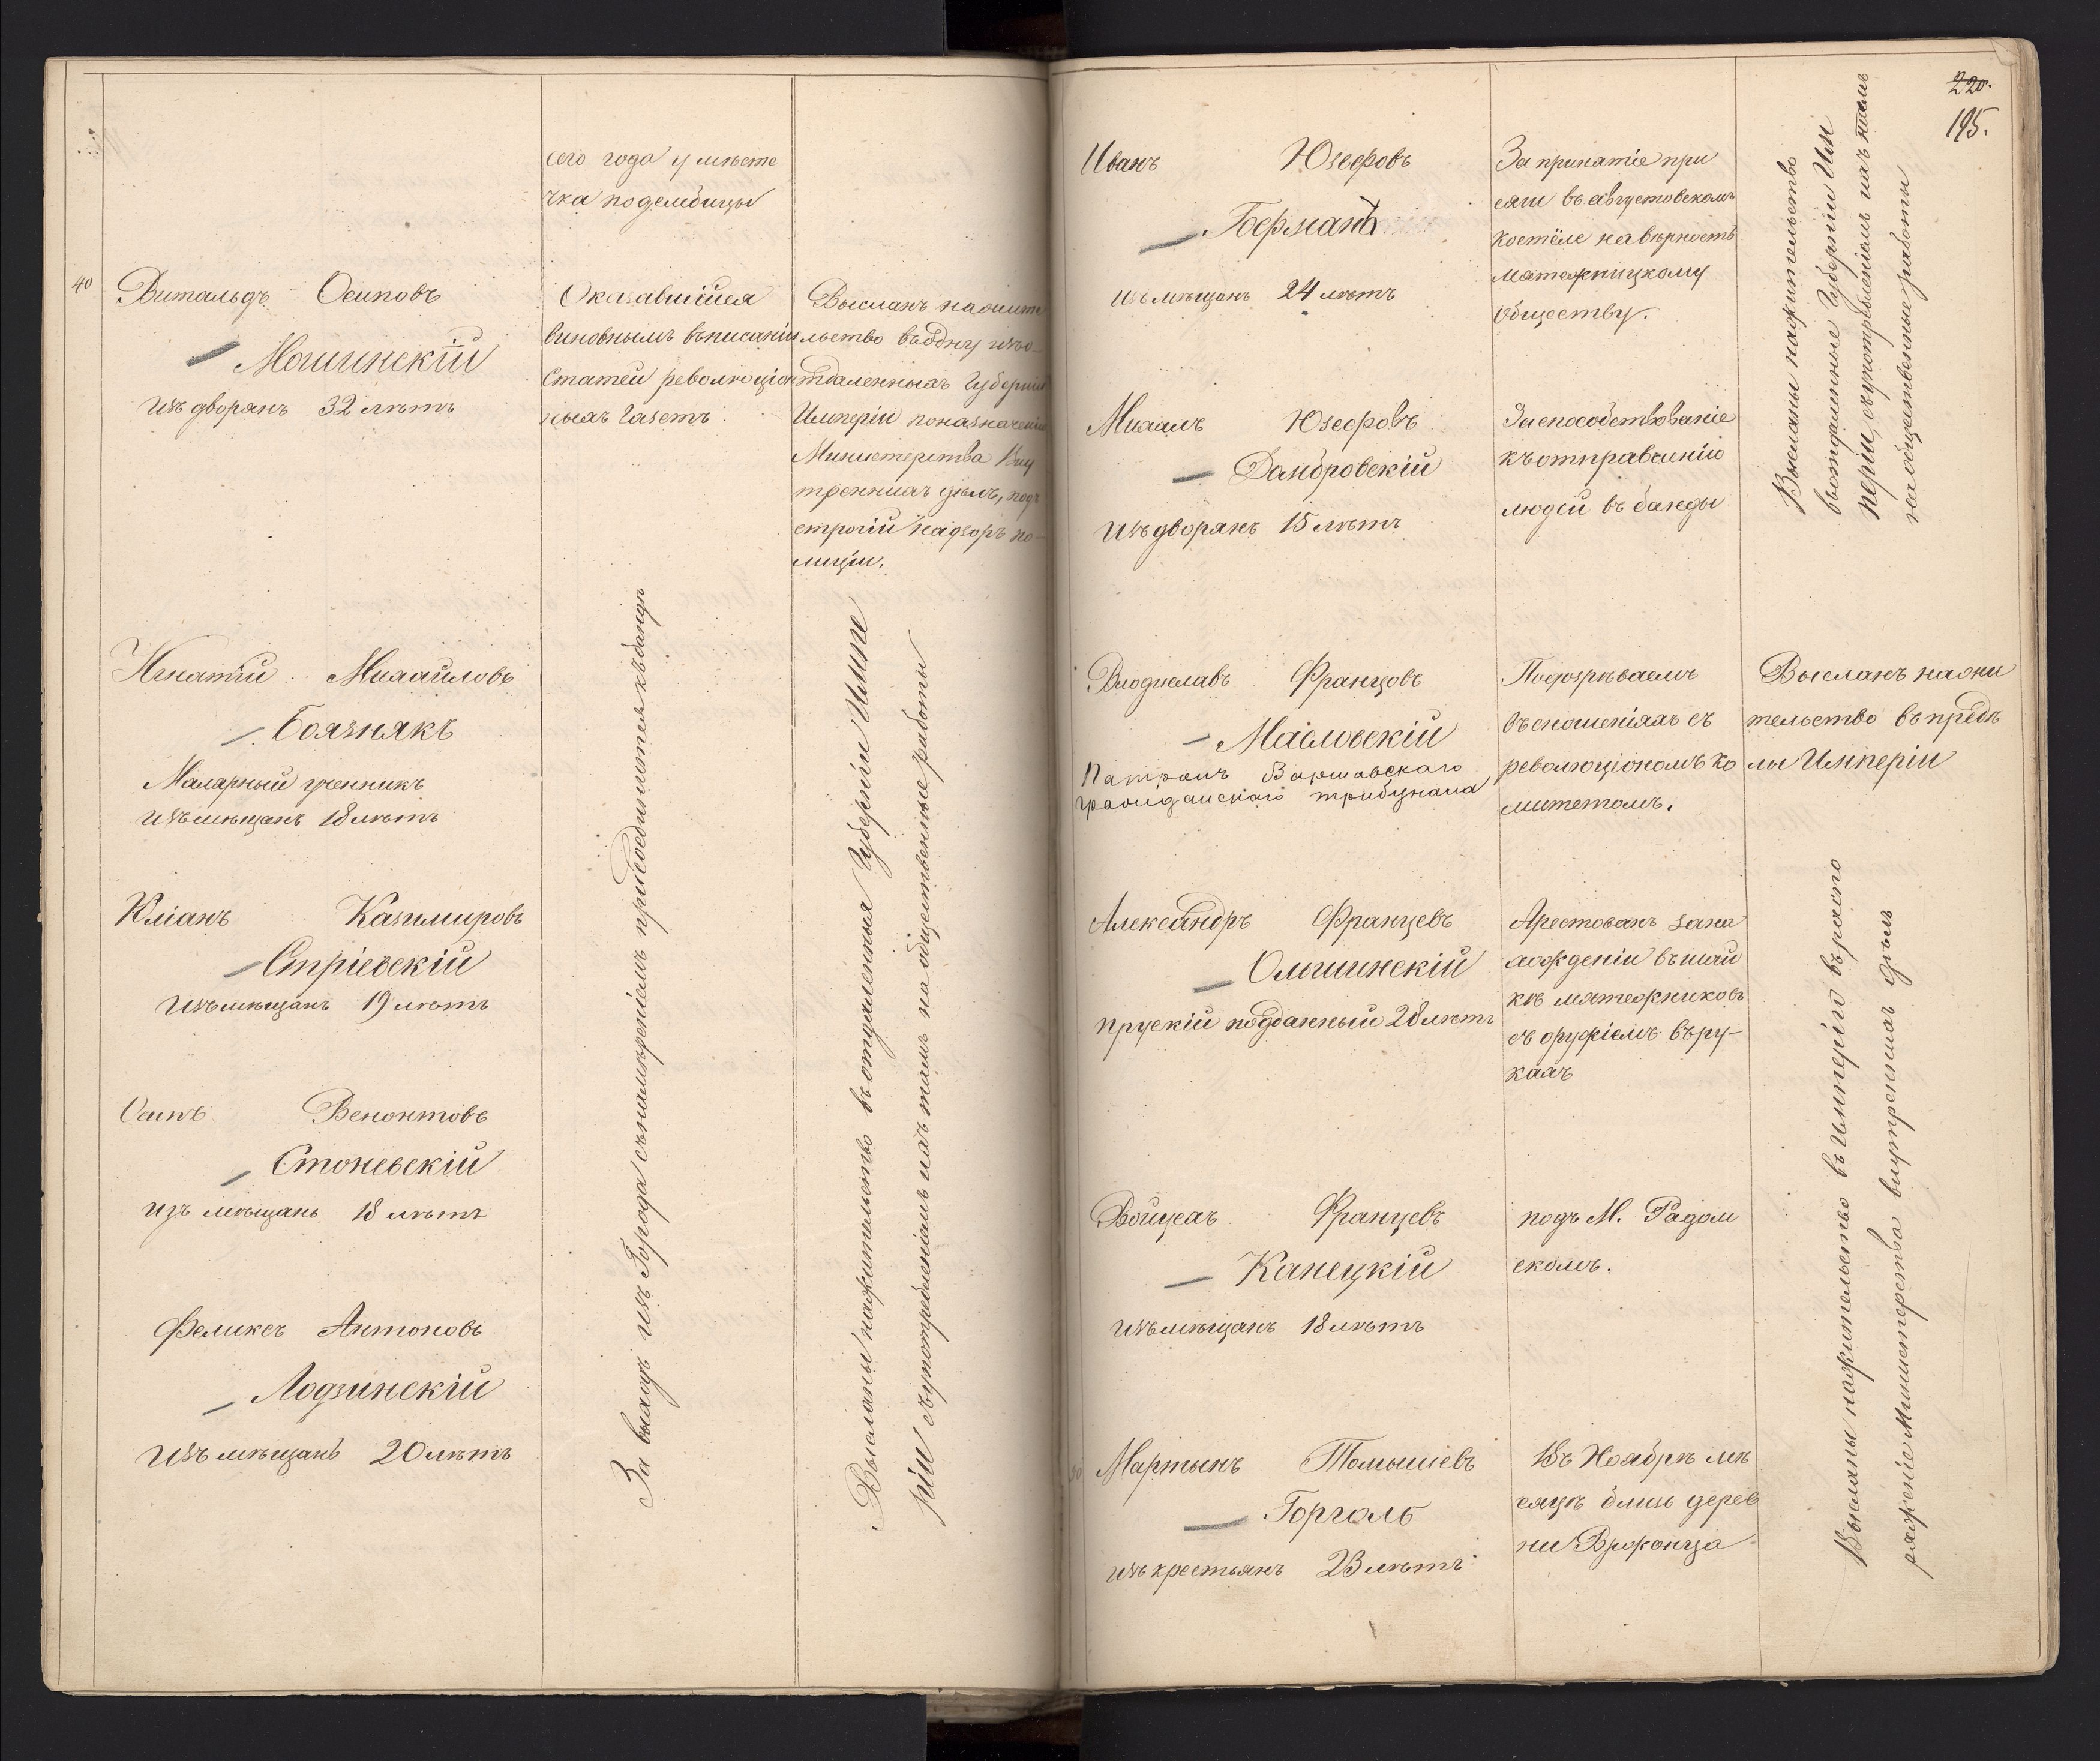 сего года у мѣсте
чка
40
Витальдъ Осиповъ
Мошинскій
изъ дворянъ 32 лѣтъ
Оказавшійся
виновнымъ въ писаніи
статей революціон
ныхъ газетъ
Высланъ на жите
льство въ одну изъ о-
тдаленныхъ Губерній
Имперіи по назначенію
Министерства Вну
треннихъ дѣлъ, подъ
строгій надзоръ по-
лиціи.
Игнатій Михайловъ
Боязнякъ
Малярный ученникъ
изъ мѣщанъ 18 лѣтъ
Юліанъ Казимировъ
Стріевскій
изъ мѣщанъ 19 лѣтъ
Осипъ
Стоневскій
изъ мѣщанъ 18 лѣтъ
Феликсъ Антоновъ
Лодзинскій
изъ мѣщанъ 20 лѣтъ
За выходъ изъ Города съ намѣреніемъ присоединится къ бандѣ
Высланы на жительство въ отдаленныя Губерніи Импе
ріи съ употребленіемъ ихъ тамъ на общественные работы
220.
195.
Иванъ Юзефовъ
Берманъ
изъ мѣщанъ 24 лѣтъ
За принятіе при
сяги въ августовскомъ
костёле на вѣрность
мятежницкому
обществу.
Михаилъ Юзефовъ
Домбровскій
изъ дворянъ 15 лѣтъ
За способствованіе
къ отправленію
людей въ банды
Высланы на жительство
въ отдаленные Губерніи Им
періи, съ употребленіемъ ихъ тамъ
на общественные работы
Владиславъ Францовъ
Маіовскій
Патронъ Варшавскаго
гражданскаго трибунала
Подозрѣваемъ
въ сношеніяхъ съ
революціономъ ко
митетомъ.
Высланъ на жи
тельство въ предѣ
лы Имперіи
Александръ Францевъ
Ольшинскій
прускій подданный 28 лѣтъ
Арестованъ за на
хожденіи въ шай
кѣ мятежниковъ
съ оружіемъ въ ру-
кахъ
Войцехъ Францевъ
Канецкій
изъ мѣщанъ 18 лѣтъ
подъ М. Радом
скомъ.
50
Мартынъ Томашевъ
Горголь
изъ крестьянъ 23 лѣтъ
Въ Ноябрѣ мѣ
сяцѣ близь дерев
ни
Высланы на жительство въ Имперію въ распо
ряженіе Министерства внутреннихъ дѣлъ